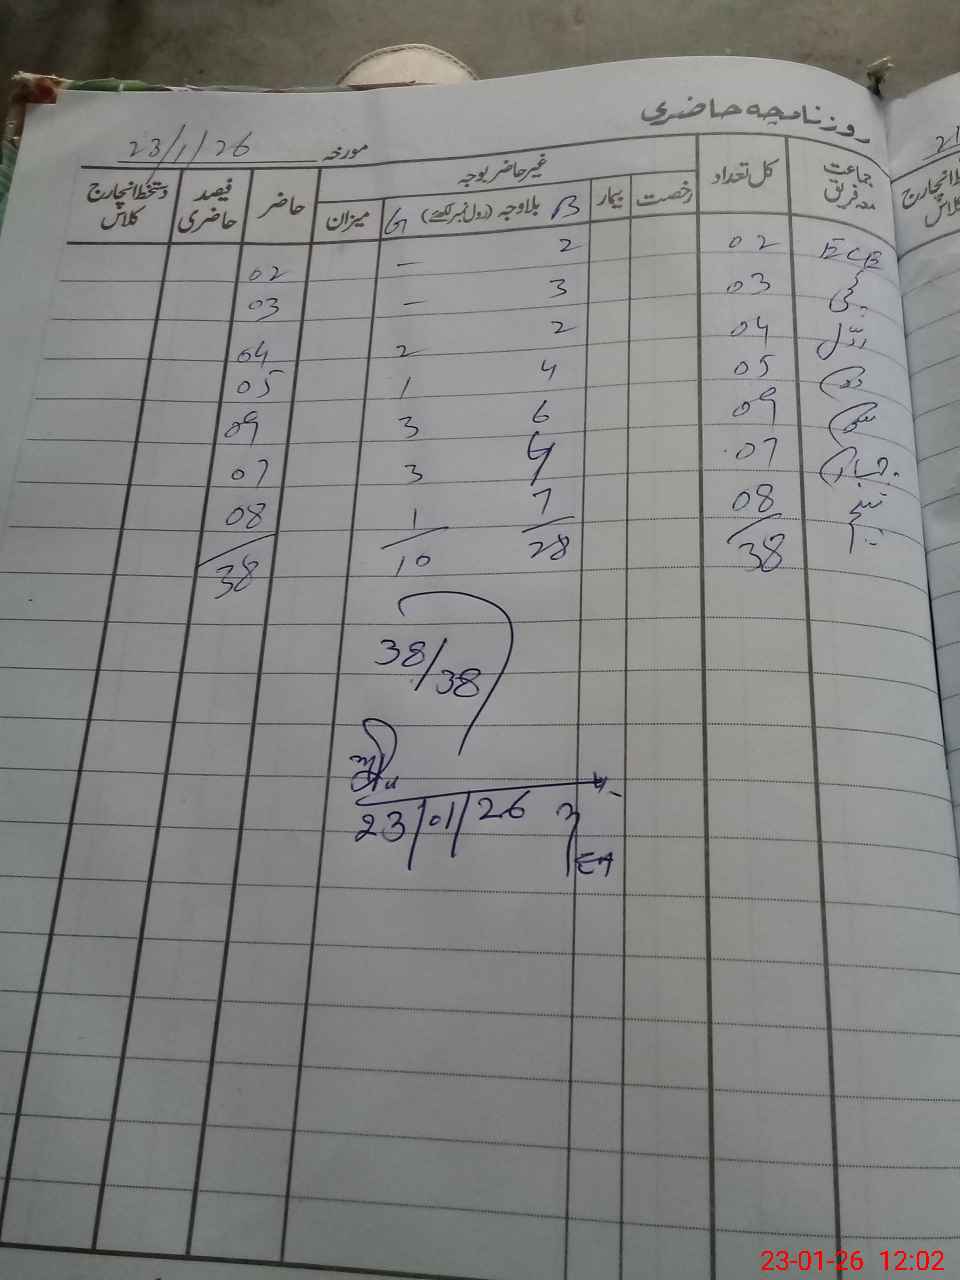 روزنامچہ حاضری
مورخہ 23/1/26
جماعت معہ فریق کل تعداد غیر حاضر بوجہ حاضر فیصد حاضری دستخط انچارج کلاس
رخصت بیمار B بلاوجہ (رول نمبر لکھیے) G میزان
ECE 02 2 - 02
03 3 - 03
اول 04 2 2 04
دوم 05 4 1 05
سوم 09 6 3 09
چہارم 07 4 3 07
پنجم 08 7 1 08
38 28 10 38
38/38
23/01/26
21
انچارج
کلاس
23-01-26 12:02